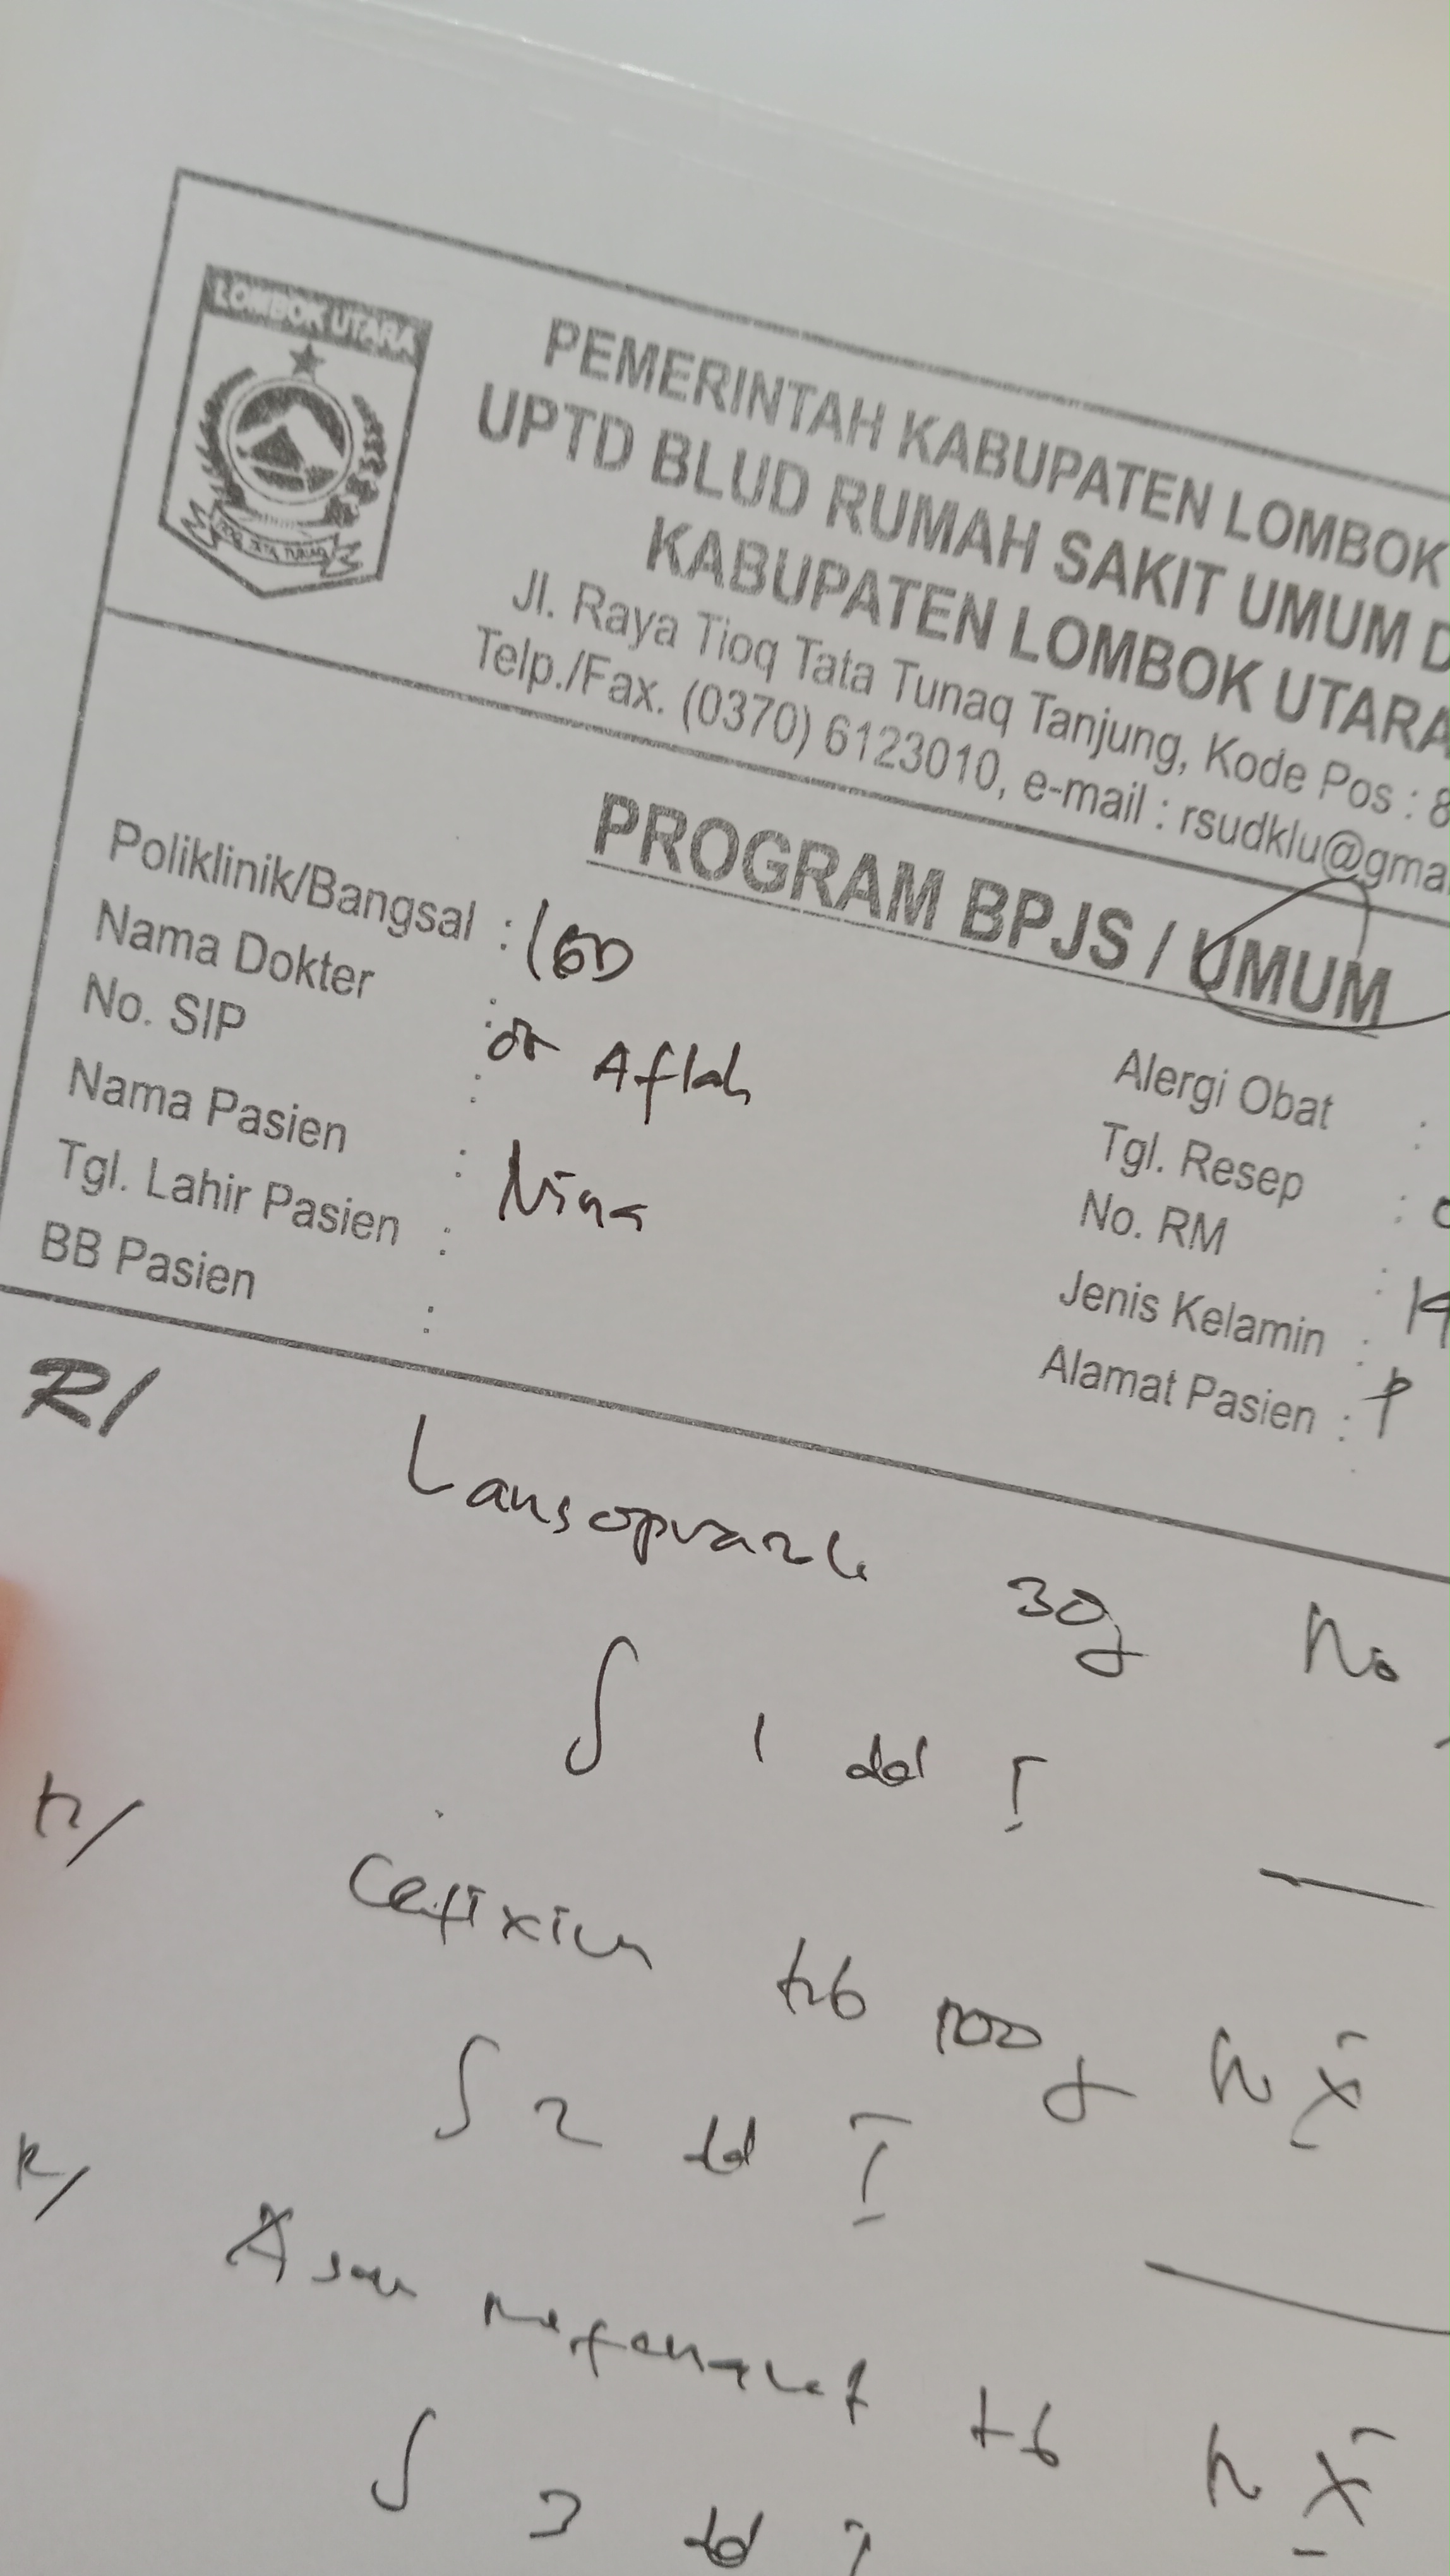 LOMBOK UTARA
TATA TUNAQ
PEMERINTAH KABUPATEN LOMBOK
UPTD BLUD RUMAH SAKIT UMUM D
KABUPATEN LOMBOK UTARA
Jl. Raya Tioq Tata Tunaq Tanjung, Kode Pos : 8
Telp./Fax. (0370) 6123010, e-mail : rsudklu@gmai
PROGRAM BPJS / UMUM
Poliklinik/Bangsal : IGD
Nama Dokter : dr Aflah
No. SIP :
Nama Pasien : Nina
Tgl. Lahir Pasien :
BB Pasien :
Alergi Obat :
Tgl. Resep :
No. RM : 14
Jenis Kelamin : P
Alamat Pasien :
R/ Lansoprazole 30g No
∫ 1 dd I
R/ Cefixim tab 100g No X
∫ 2 dd I
R/ Asam mefenamat tab No X
∫ 3 dd I